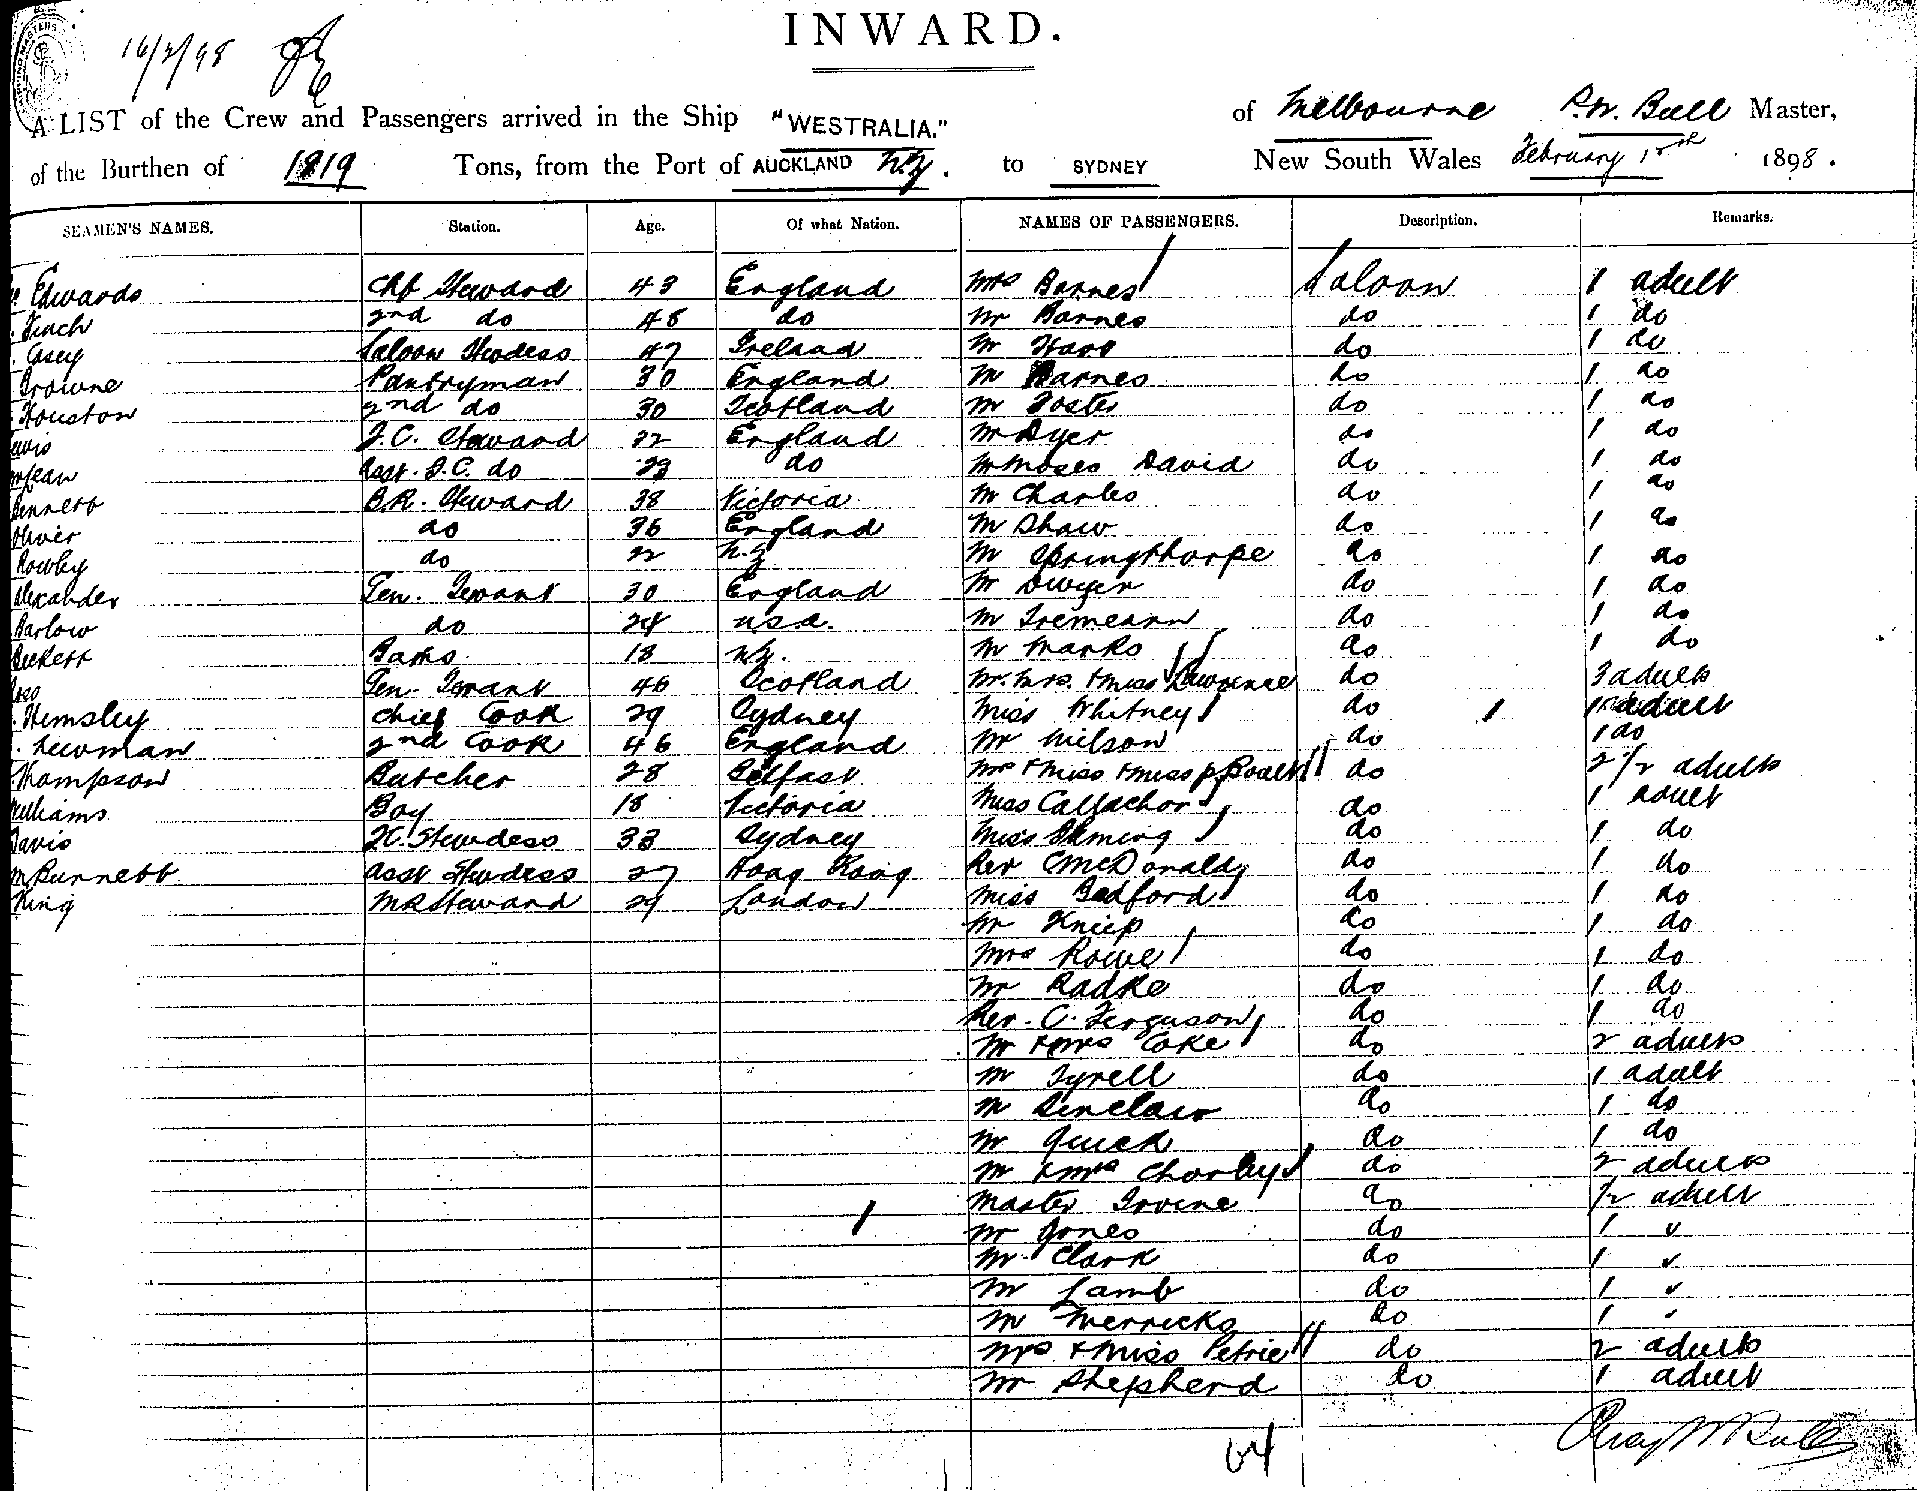 16/2/98
INWARD.
A LIST of the Crew and Passengers arrived in the Ship "WESTRALIA." of Melbourne P.W. Bull Master,
of the Burthen of 1819 Tons, from the Port of AUCKLAND N.Z. to SYDNEY New South Wales February 15th 1898.
SEAMEN'S NAMES. Station. Age. Of what Nation. NAMES OF PASSENGERS. Description. Remarks.
Edwards Chf Steward 43 England Mrs Barnes Saloon 1 adult
Finch 2nd do 48 do Mr Barnes do 1 do
Casey Saloon Stwdess 47 Ireland Mr Hare do 1 do
Browne Pantryman 30 England Mr Barnes do 1 do
Houston 2nd do 30 Scotland Mr Foster do 1 do
Lewis F.C. Steward 22 England Mr Dyer do 1 do
McLean Asst. F.C. do 23 do Mr Moses David do 1 do
Bennett B.R. Steward 38 Victoria Mr Charles do 1 do
Oliver do 36 England Mr Shaw do 1 do
Rowley do 22 N.Z. Mr Springthorpe do 1 do
Alexander Gen. Servant 30 England Mr Dwyer do 1 do
Barlow do 24 U.S.A. Mr Tremearn do 1 do
Beckett 18 N.Z. Mr Marks do 1 do
Ross Gen. Servant 46 Scotland Mr. Mrs. + Miss Lawrence do 3 adults
Hemsley Chief Cook 29 Sydney Miss Whitney do 1 adult
Newman 2nd Cook 46 England Mr Wilson do 1 do
Thompson Butcher 28 Belfast Mrs + Miss + Miss do 2 1/2 adults
Williams Boy 18 Victoria Miss Callachor do 1 adult
Davis Stwdess 33 Sydney Miss do 1 do
McBurnett Asst Stwdess 27 Hong Kong Rev McDonald do 1 do
King M.R. Steward 29 London Miss Bedford do 1 do
Mr Kniep do 1 do
Mrs Rowe do 1 do
Mr Radke do 1 do
Rev. C. Ferguson do 1 do
Mr + Mrs Coke do 2 adults
Mr Tyrell do 1 adult
Mr Sinclair do 1 do
Mr Quick do 1 do
Mr + Mrs Chorley do 2 adults
Master Irvine do 1/2 adult
Mr Jones do 1 "
Mr Clark do 1 "
Mr Lamb do 1 "
Mr Merricks do 1 "
Mrs + Miss Petrie do 2 adults
Mr Shepherd do 1 adult
64